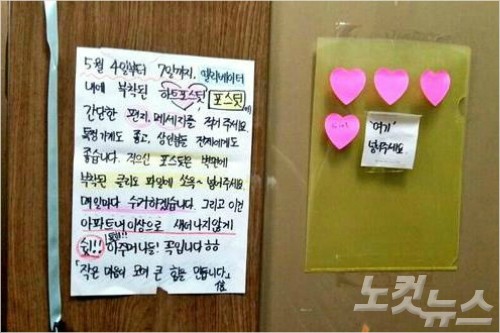 5월 4일부터 7일까지. 엘리베이터
내에 부착된 하트포스팃 포스팃에
간단한 편지, 메세지를 적어주세요.
특정가게도 좋고, 상인분들 전체에게도
좋습니다. 적으신 포스트는 벽면에
부착된 클리도 파일에 쏘옥~ 넣어주세요.
매일마다 수거하겠습니다. 그리고 이건
아파트내 이상으로 새어나지않게
쉿!! 아주머니들! 꼭입니다 ㅎㅎ
「작은 마음이 모여 큰 힘을 만듭니다.」
"여기"
넣어주세요
노컷
뉴스